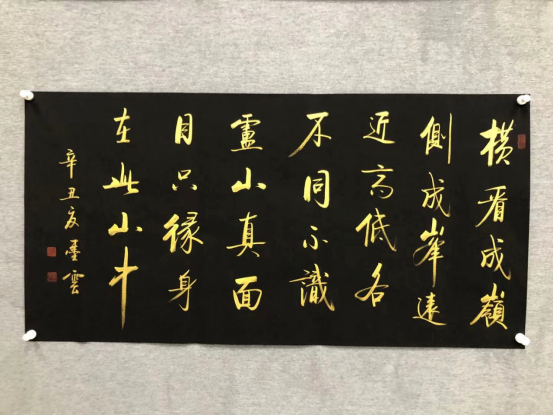 横看成嶺
側成峯遠
近高低各
不同不識
盧山真面
目只緣身
在此山中
辛丑夏墨雲